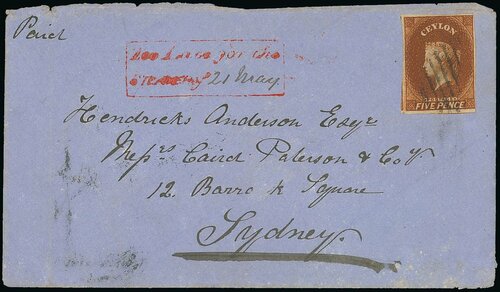 Paid
Too Late for the
Steamer of 21 May
CEYLON
POSTAGE
FIVE PENCE
Hendricks Anderson Esqr.
Messrs Caird Paterson & Coys.
12. Barrack Square
Sydney.